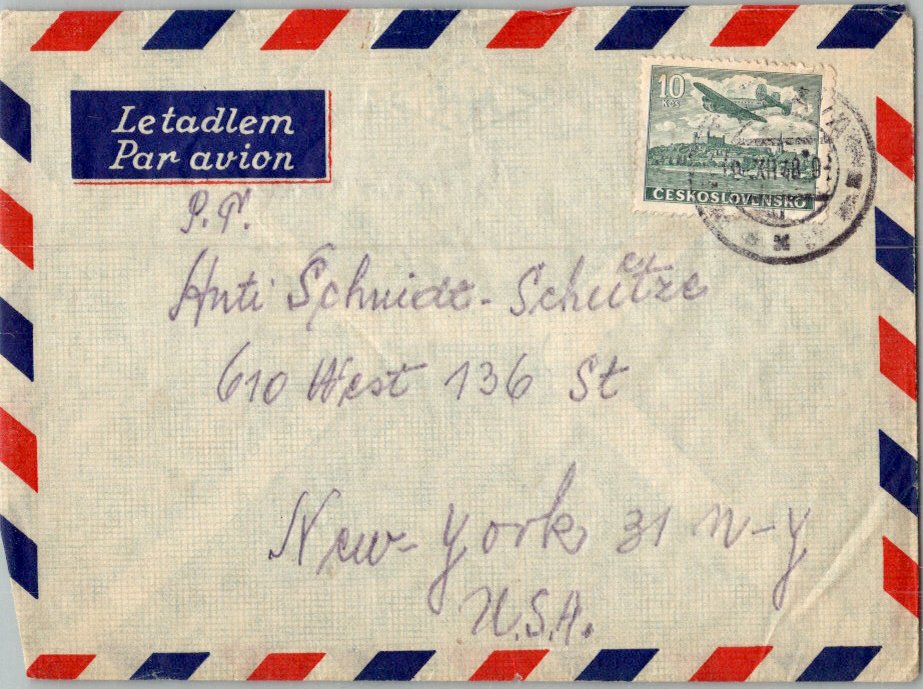 Letadlem
Par avion
10
Kčs
ČESKOSLOVENSKO
P.T.
Anti Schmidt-Schütze
610 West 136 St
New-York 31 N-Y
U.S.A.